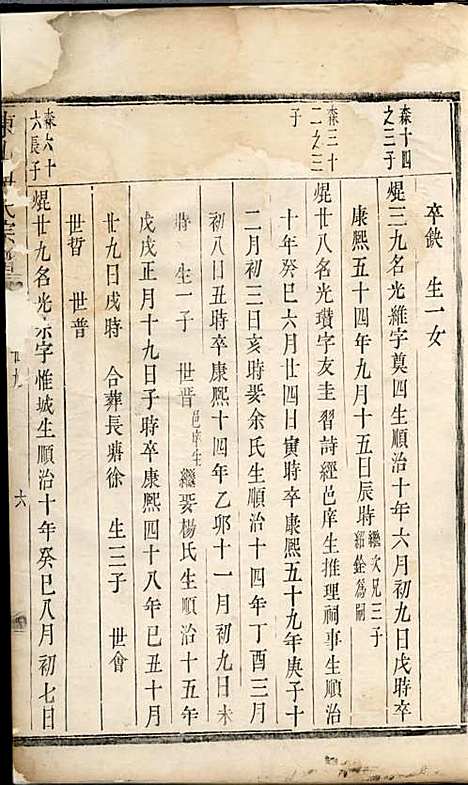 卒缺 生一女
森十四
之三子
焜三九名光維字奠四生順治十年六月初九日戌時卒
康熙五十四年九月十五日辰時 繼次兄三子
紹銓為嗣
森三十
二之三
子
焜廿八名光瓚字友圭習詩經邑庠生推理祠事生順治
十年癸巳六月廿四日寅時卒康熙五十九年庚子十
二月初三日亥時娶余氏生順治十四年丁酉三月
初八日丑時卒康熙十四年乙卯十一月初九日未
時 生一子 世晋 邑庠生 繼娶楊氏生順治十五年
戊戌正月十九日子時卒康熙四十八年己丑十月
廿九日戌時 合葬長塘徐 生三子 世會
世晢 世普
森六十
六長子
焜廿九名光宗字惟城生順治十年癸巳八月初七日
氏宗譜
六